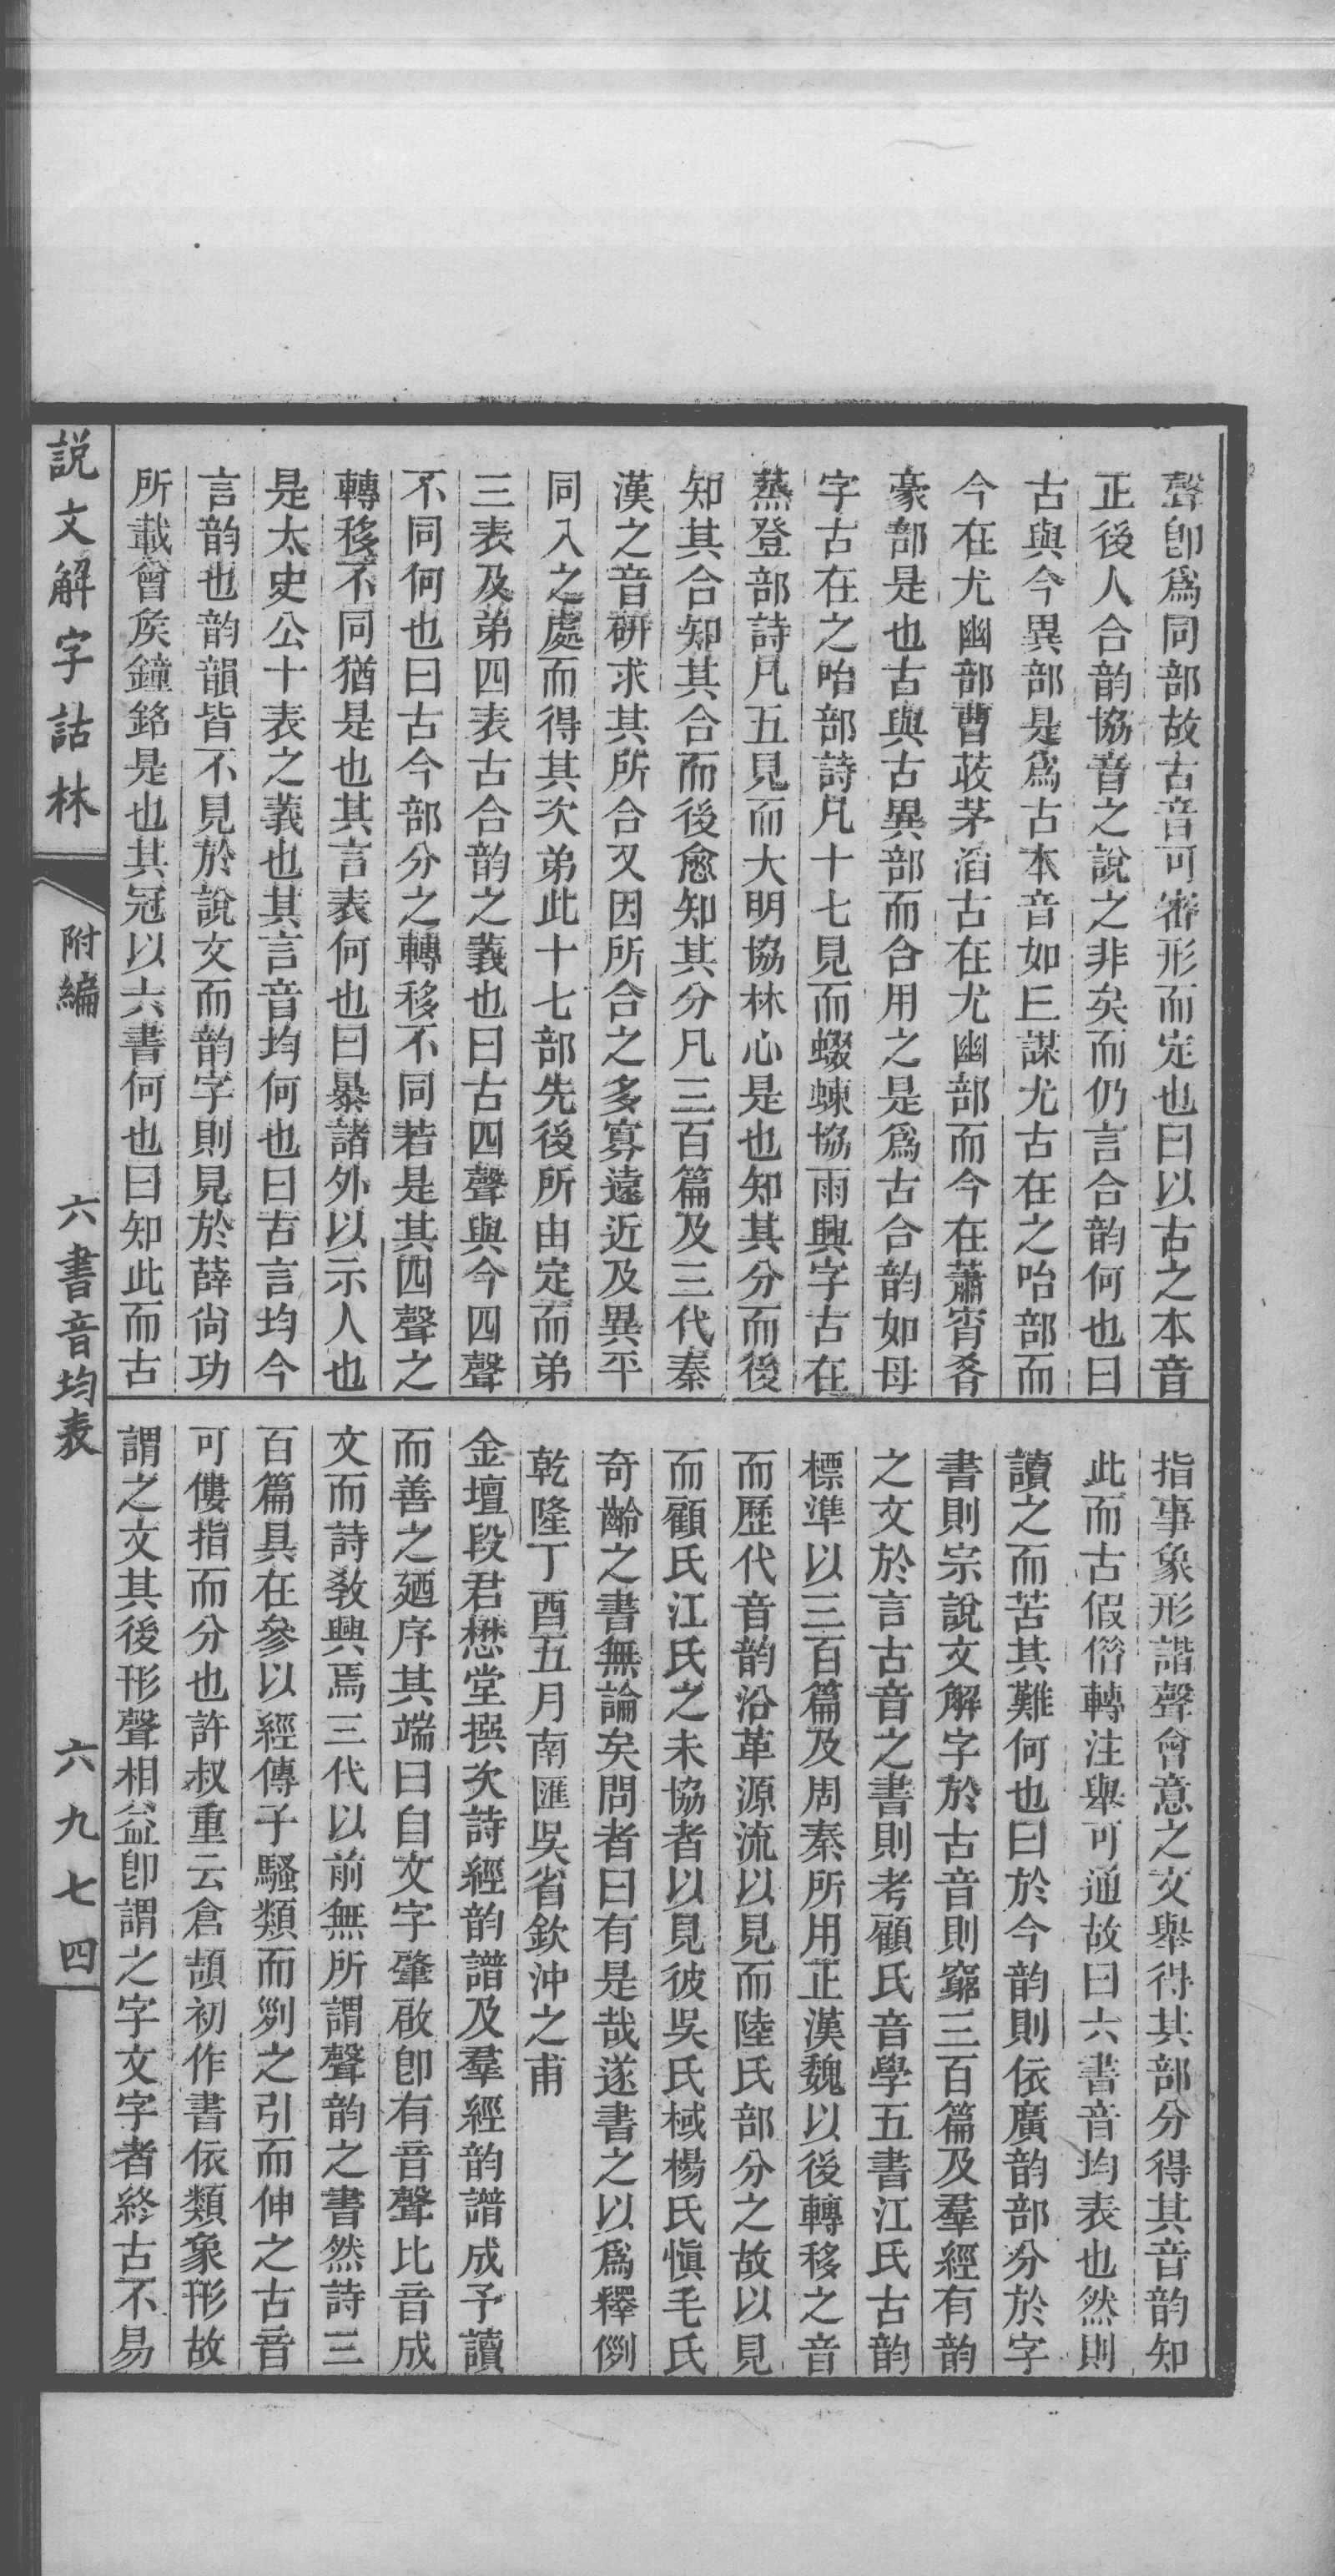 聲卽爲同部故古音可審形而定也曰以古之本音
正後人合韵協音之說之非矣而仍言合韵何也曰
古與今異部是爲古本音如巨謀尤古在之咍部而
今在尤幽部曹茇茅滔古在尤幽部而今在蕭宵肴
豪部是也古與古異部而合用之是爲古合韵如母
字古在之咍部詩凡十七見而蝃蝀協雨興字古在
蒸登部詩凡五見而大明協林心是也知其分而後
知其合知其合而後愈知其分凡三百篇及三代秦
漢之音硏求其所合又因所合之多寡遠近及異平
同入之處而得其次弟此十七部先後所由定而弟
三表及弟四表古合韵之義也曰古四聲與今四聲
不同何也曰古今部分之轉移不同若是其四聲之
轉移不同猶是也其言表何也曰暴諸外以示人也
是太史公十表之義也其言音均何也曰古言均今
言韵也韵韻皆不見於說文而韵字則見於薛尙功
所載曾矦鐘銘是也其冠以六書何也曰知此而古
指事象形諧聲會意之文舉得其部分得其音韵知
此而古假借轉注舉可通故曰六書音均表也然則
讀之而苦其難何也曰於今韵則依廣韵部分於字
書則宗說文解字於古音則窮三百篇及羣經有韵
之文於言古音之書則考顧氏音學五書江氏古韵
標準以三百篇及周秦所用正漢魏以後轉移之音
而歷代音韵沿革源流以見而陸氏部分之故以見
而顧氏江氏之未協者以見彼吳氏棫楊氏愼毛氏
奇齡之書無論矣問者曰有是哉遂書之以爲釋例
乾隆丁酉五月南匯吳省欽沖之甫
金壇段君懋堂撰次詩經韵譜及羣經韵譜成予讀
而善之廼序其端曰自文字肇啟卽有音聲比音成
文而詩敎興焉三代以前無所謂聲韵之書然詩三
百篇具在參以經傳子騷類而列之引而伸之古音
可僂指而分也許叔重云倉頡初作書依類象形故
謂之文其後形聲相益卽謂之字文字者終古不易
説文解字詁林
附編
六書音均表
六九七四